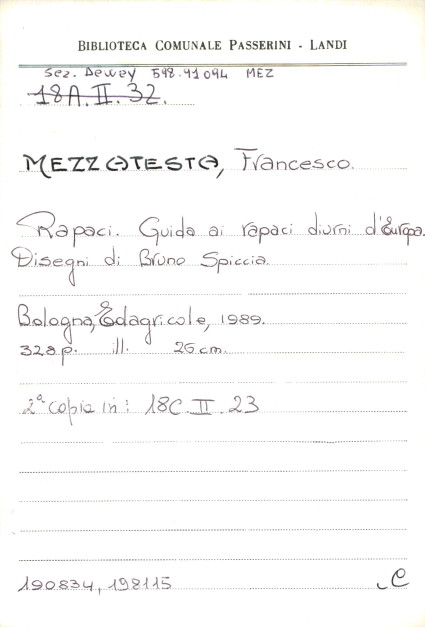 BIBLIOTECA COMUNALE PASSERINI - LANDI
Sez. Dewey 598.91094 MEZ
18A.II.32.
MEZZATESTA, Francesco.
Rapaci. Guida ai rapaci diurni d'Europa.
Disegni di Bruno Spiccia.
Bologna, Edagricole, 1989.
328 p. ill. 26 cm.
2ª copia in: 18C.II.23
190834, 198115
C